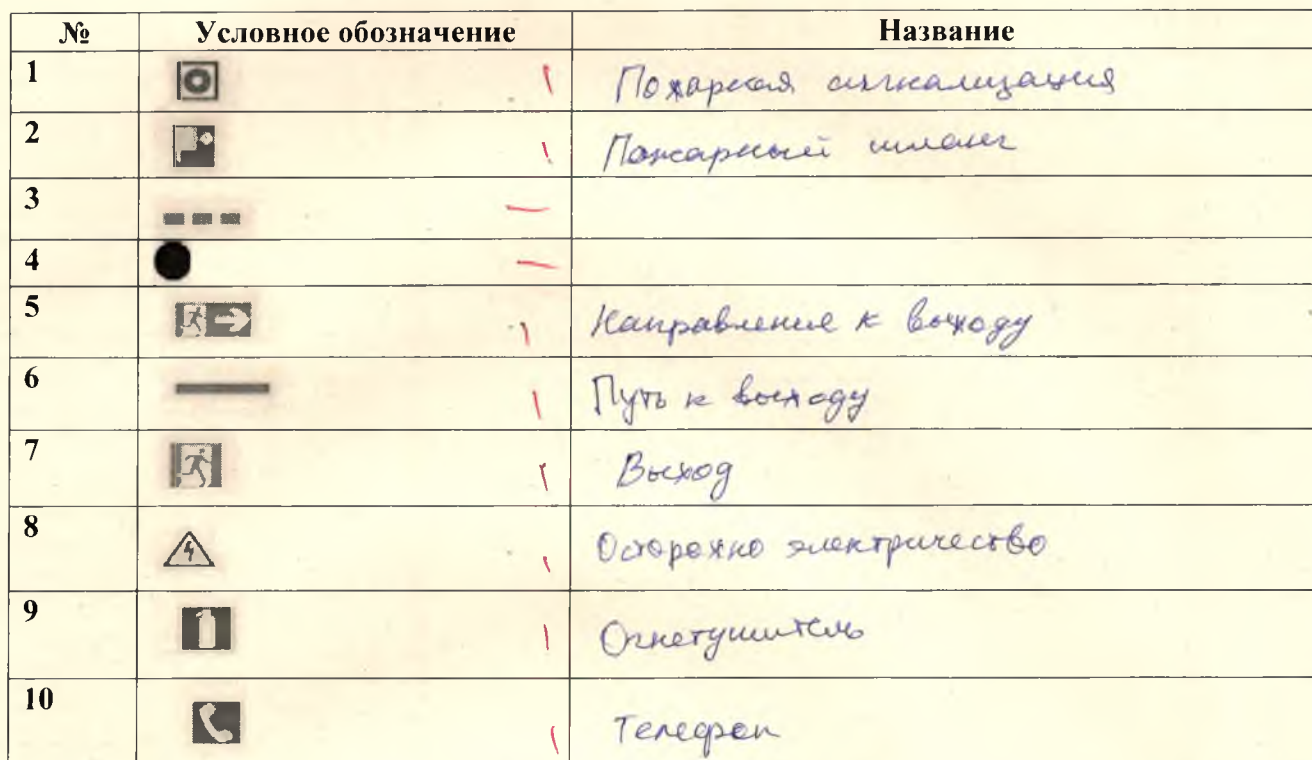 № Условное обозначение Название
1 Пожарная сигнализация
2 Пожарный шланг
3
4
5 Направление к выходу
6 Путь к выходу
7 Выход
8 Осторожно электричество
9 Огнетушитель
10 Телефон